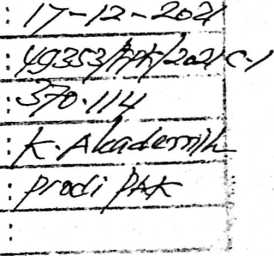 : 17-12-2021
: 49353/PAK/2021 C-1
: 370.114
: K. Akademik
: Prodi PAK
: